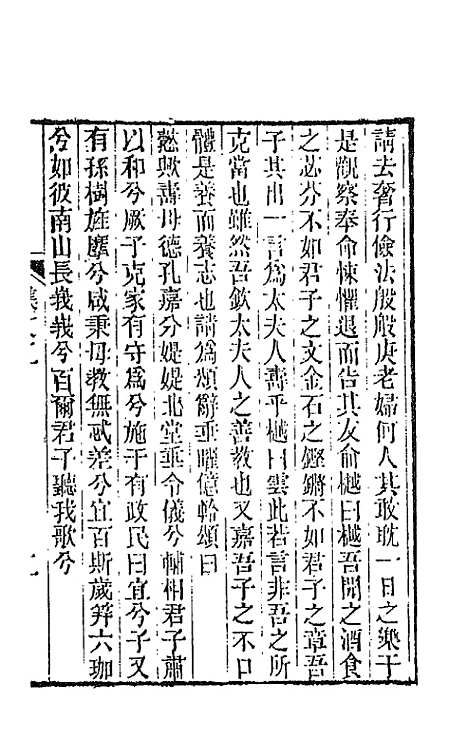 請去奢行儉法殷殷庚老婦何人其敢耽一日之樂于
是觀察奉命悚懼退而告其友俞樾曰樾吾聞之酒食
之苾芬不如君子之文金石之鏗鏘不如君子之章吾
子其出一言爲太夫人壽乎樾曰雲此若言非吾之所
克當也雖然吾欽太夫人之善教也又嘉吾子之不口
體是養而養志也請爲頌辭垂曜億齡頌曰
懿歟壽母德孔嘉兮媞媞北堂垂令儀兮輔相君子肅
以和兮厥子克家有守爲兮施于有政民曰宜兮子又
有孫樹旌麾兮咸秉母教無忒差兮宜百斯歲筓六珈
兮如彼南山長峩峩兮百爾君子聽我歌兮